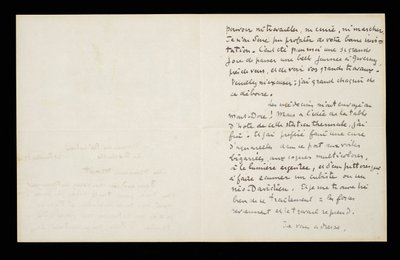 pouvoir ni travailler, ni écrire, ni marcher.
Je n'ai donc pu profiter de votre bonne invi-
tation. C'eut été pour moi une si grande
joie de passer une belle journée à Giverny,
près de vous, et de voir vos grands travaux.
Veuillez m'excuser; j'ai grand chagrin de
ce déboire.
Les médecins m'ont envoyé au
Mont-Dore! Mais à l'idée de la table
d'hôte de cette station thermale, j'ai
fui. Et j'ai préféré faire une cure
d'aquarelle dans ce port aux voiles
bigarrées, aux coques multicolores,
à la lumière argentée, et d'un pittoresque
à faire se un cubiste ou un
néo-Davidien. Et je me trouve très
bien de ce traitement: les forces
reviennent et le travail reprend.
Je vous adresse,